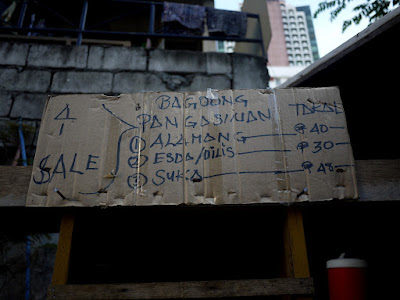 BAGOONG
PANGASINAN
① ALAMANG ₱ 40
② ESDA/DILIS ₱ 30
③ SUKA ₱ 48
4
SALE